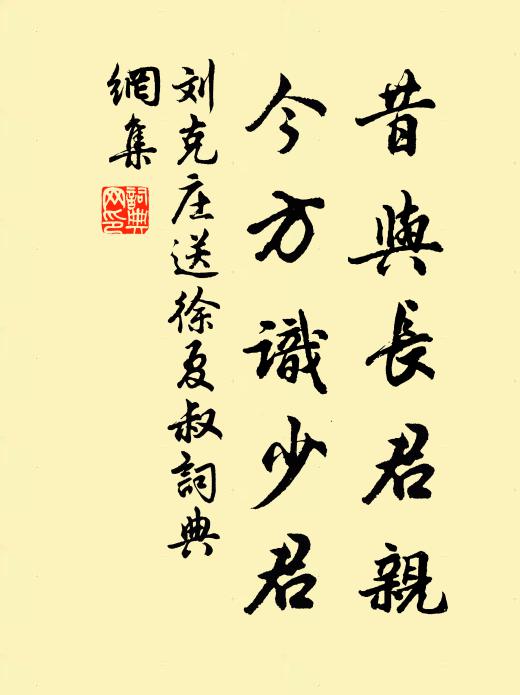 昔與長君親
今方識少君
刘克庄送徐复叔詞典
網集
詞典
网印